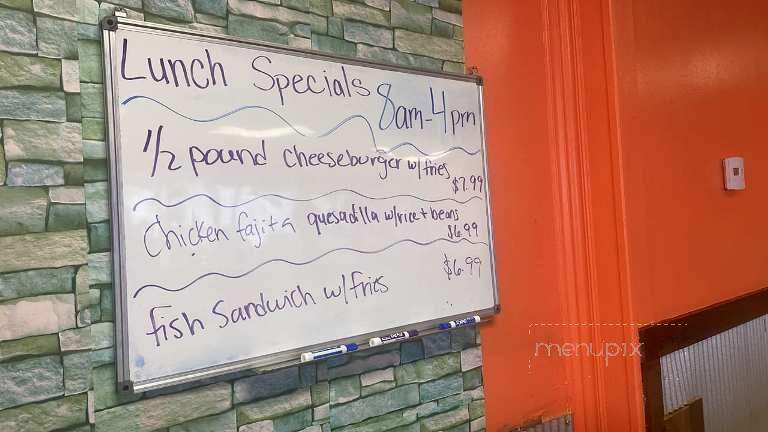 Lunch Specials 8am-4pm
1/2 pound cheeseburger w/fries
$7.99
Chicken fajita quesadilla w/rice + beans
$6.99
$6.99
fish Sandwich w/fries
menupix